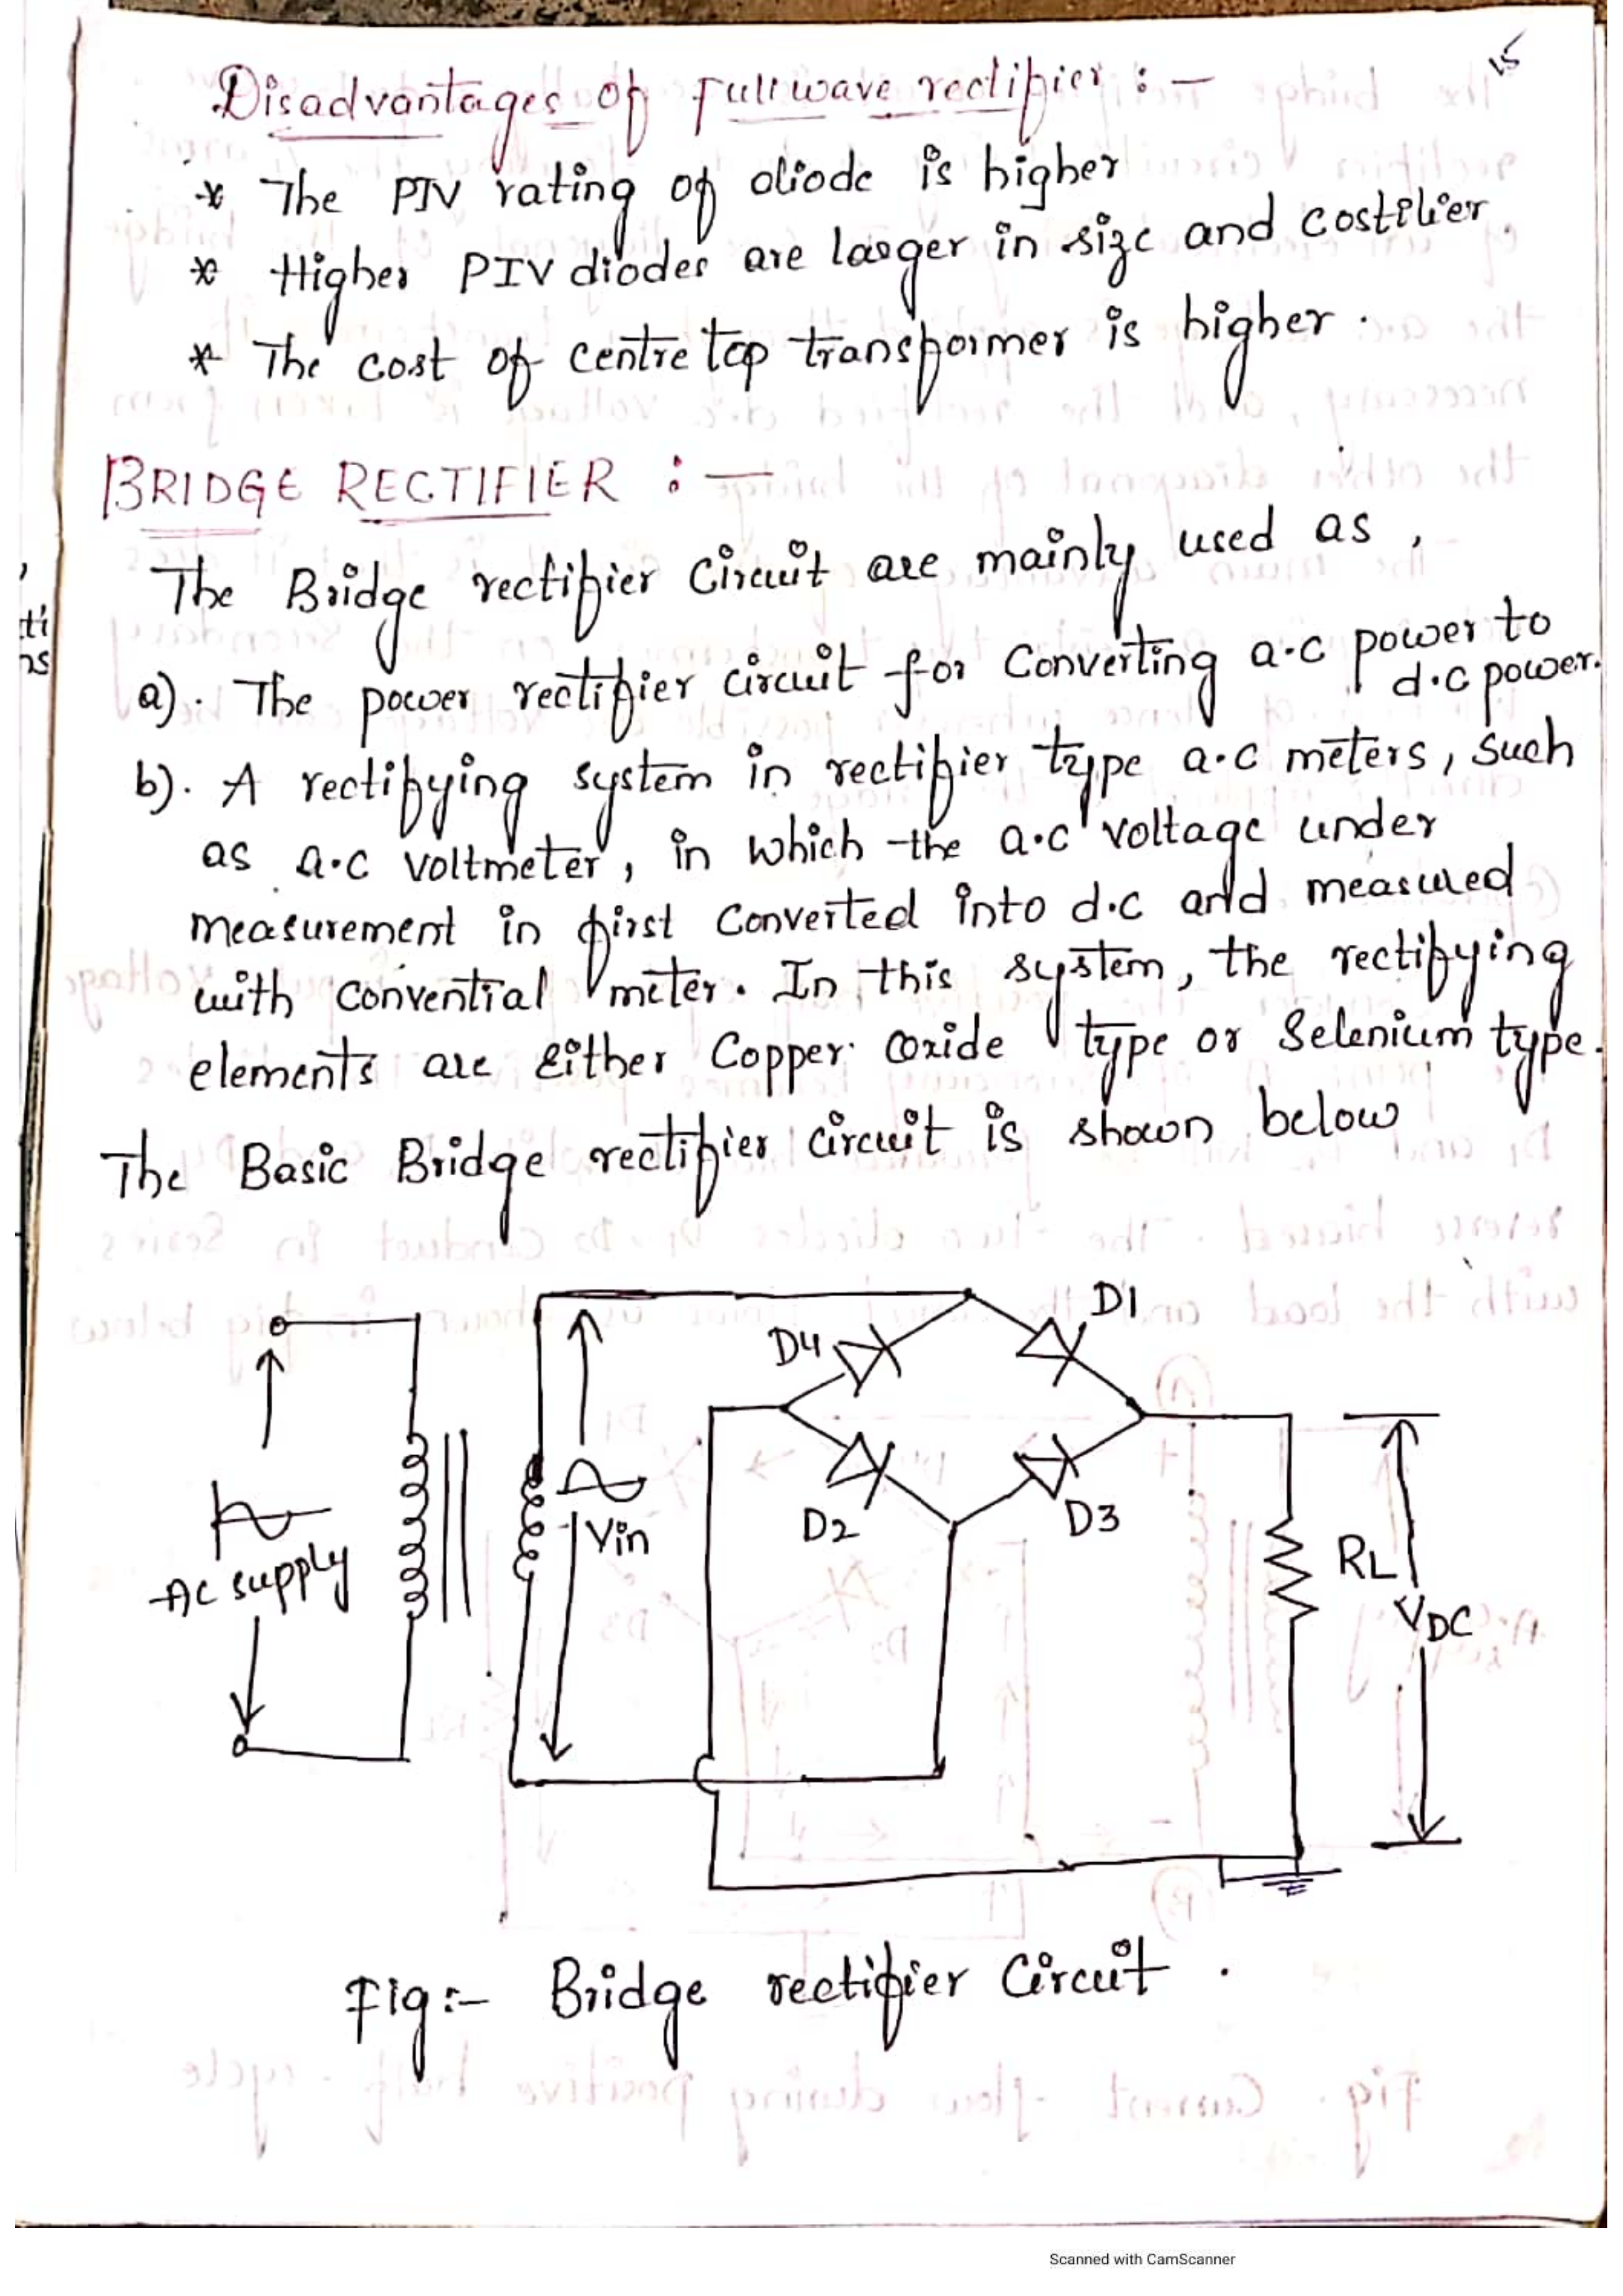 15
Disadvantages of fullwave rectifier : -
* The PIV rating of diode is higher
* Higher PIV diodes are larger in size and costilier.
* The cost of centre tap transformer is higher.
BRIDGE RECTIFIER : -
The Bridge rectifier Circuit are mainly used as ,
a). The power rectifier circuit for Converting a.c power to
d.c power.
b). A rectifying system in rectifier type a.c meters, such
as a.c voltmeter, in which the a.c voltage under
measurement in first Converted into d.c and measured
with convential meter. In this system, the rectifying
elements are Either Copper oxide type or Selenium type.
The Basic Bridge rectifier circuit is shown below
D1
D4
D2
D3
Vin
AC supply
RL
VDC
Fig:- Bridge rectifier Circuit .
Scanned with CamScanner